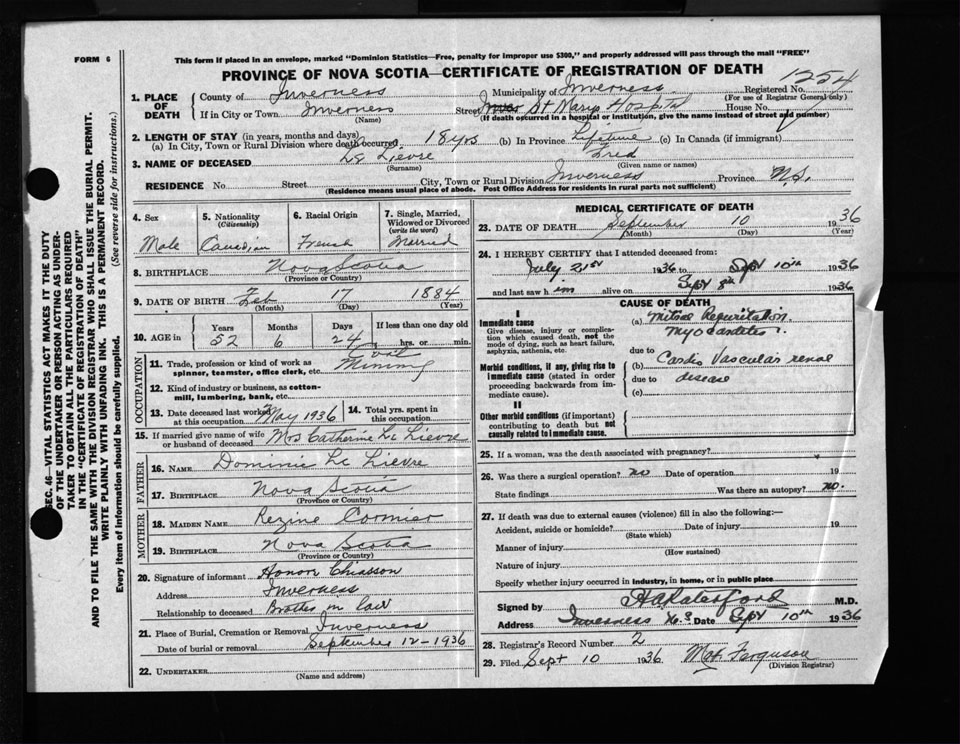 FORM 6
This form if placed in an envelope, marked "Dominion Statistics—Free, penalty for improper use $300," and properly addressed will pass through the mail "FREE"
PROVINCE OF NOVA SCOTIA—CERTIFICATE OF REGISTRATION OF DEATH
SEC. 46—VITAL STATISTICS ACT MAKES IT THE DUTY
OF THE UNDERTAKER OR PERSON ACTING AS UNDER-
TAKER TO OBTAIN ALL THE PARTICULARS REQUIRED
IN THE "CERTIFICATE OF REGISTRATION OF DEATH"
AND TO FILE THE SAME WITH THE DIVISION REGISTRAR WHO SHALL ISSUE THE BURIAL PERMIT.
WRITE PLAINLY WITH UNFADING INK. THIS IS A PERMANENT RECORD.
Every item of information should be carefully supplied. (See reverse side for instructions.)
1. PLACE OF DEATH County of Inverness Municipality of Inverness Registered No. 1254
(For use of Registrar General only)
If in City or Town Inverness (Name) Street St Marys Hospital House No.
(If death occurred in a hospital or institution, give the name instead of street and number)
2. LENGTH OF STAY (in years, months and days)
(a) In City, Town or Rural Division where death occurred 18 yrs (b) In Province Lifetime (c) In Canada (if immigrant)
3. NAME OF DECEASED Le Lievre Fred
(Surname) (Given name or names)
RESIDENCE No. Street City, Town or Rural Division Inverness Province N.S.
(Residence means usual place of abode. Post Office Address for residents in rural parts not sufficient)
4. Sex 5. Nationality (Citizenship) 6. Racial Origin 7. Single, Married, Widowed or Divorced (write the word)
Male Canadian French Married
8. BIRTHPLACE Nova Scotia
(Province or Country)
9. DATE OF BIRTH Feb 17 1884
(Month) (Day) (Year)
10. AGE in Years Months Days If less than one day old
52 6 24 hrs. or min.
OCCUPATION
11. Trade, profession or kind of work as spinner, teamster, office clerk, etc. Coal Mining
12. Kind of industry or business, as cotton-mill, lumbering, bank, etc.
13. Date deceased last worked at this occupation May 1936 14. Total yrs. spent in this occupation
15. If married give name of wife or husband of deceased Mrs Catherine Le Lievre
FATHER
16. NAME Dominic Le Lievre
17. BIRTHPLACE Nova Scotia
(Province or Country)
MOTHER
18. MAIDEN NAME Rezine Cormier
19. BIRTHPLACE Nova Scotia
(Province or Country)
20. Signature of informant Honor Chiasson
Address Inverness
Relationship to deceased Brother in law
21. Place of Burial, Cremation or Removal Inverness
Date of burial or removal September 12-1936
22. UNDERTAKER
(Name and address)
MEDICAL CERTIFICATE OF DEATH
23. DATE OF DEATH September 10 1936
(Month) (Day) (Year)
24. I HEREBY CERTIFY that I attended deceased from:
July 21st 1936 to Sept 10th 1936
and last saw him alive on Sept 8th 1936
CAUSE OF DEATH
I
Immediate cause
Give disease, injury or complication which caused death, not the mode of dying, such as heart failure, asphyxia, asthenia, etc.
(a) Mitral Reguritation
Myocarditis
due to
Morbid conditions, if any, giving rise to immediate cause (stated in order proceeding backwards from immediate cause).
(b) Cardio Vascular renal
due to disease
(c)
II
Other morbid conditions (if important) contributing to death but not causally related to immediate cause.
25. If a woman, was the death associated with pregnancy?
26. Was there a surgical operation? no Date of operation 19
State findings Was there an autopsy? no.
27. If death was due to external causes (violence) fill in also the following:—
Accident, suicide or homicide? Date of injury 19
(State which)
Manner of injury
(How sustained)
Nature of injury
Specify whether injury occurred in industry, in home, or in public place
Signed by HA Ratchford M.D.
Address Inverness N.S. Date Sept 10th 1936
28. Registrar's Record Number 2
29. Filed Sept 10 1936 Ferguson
(Division Registrar)